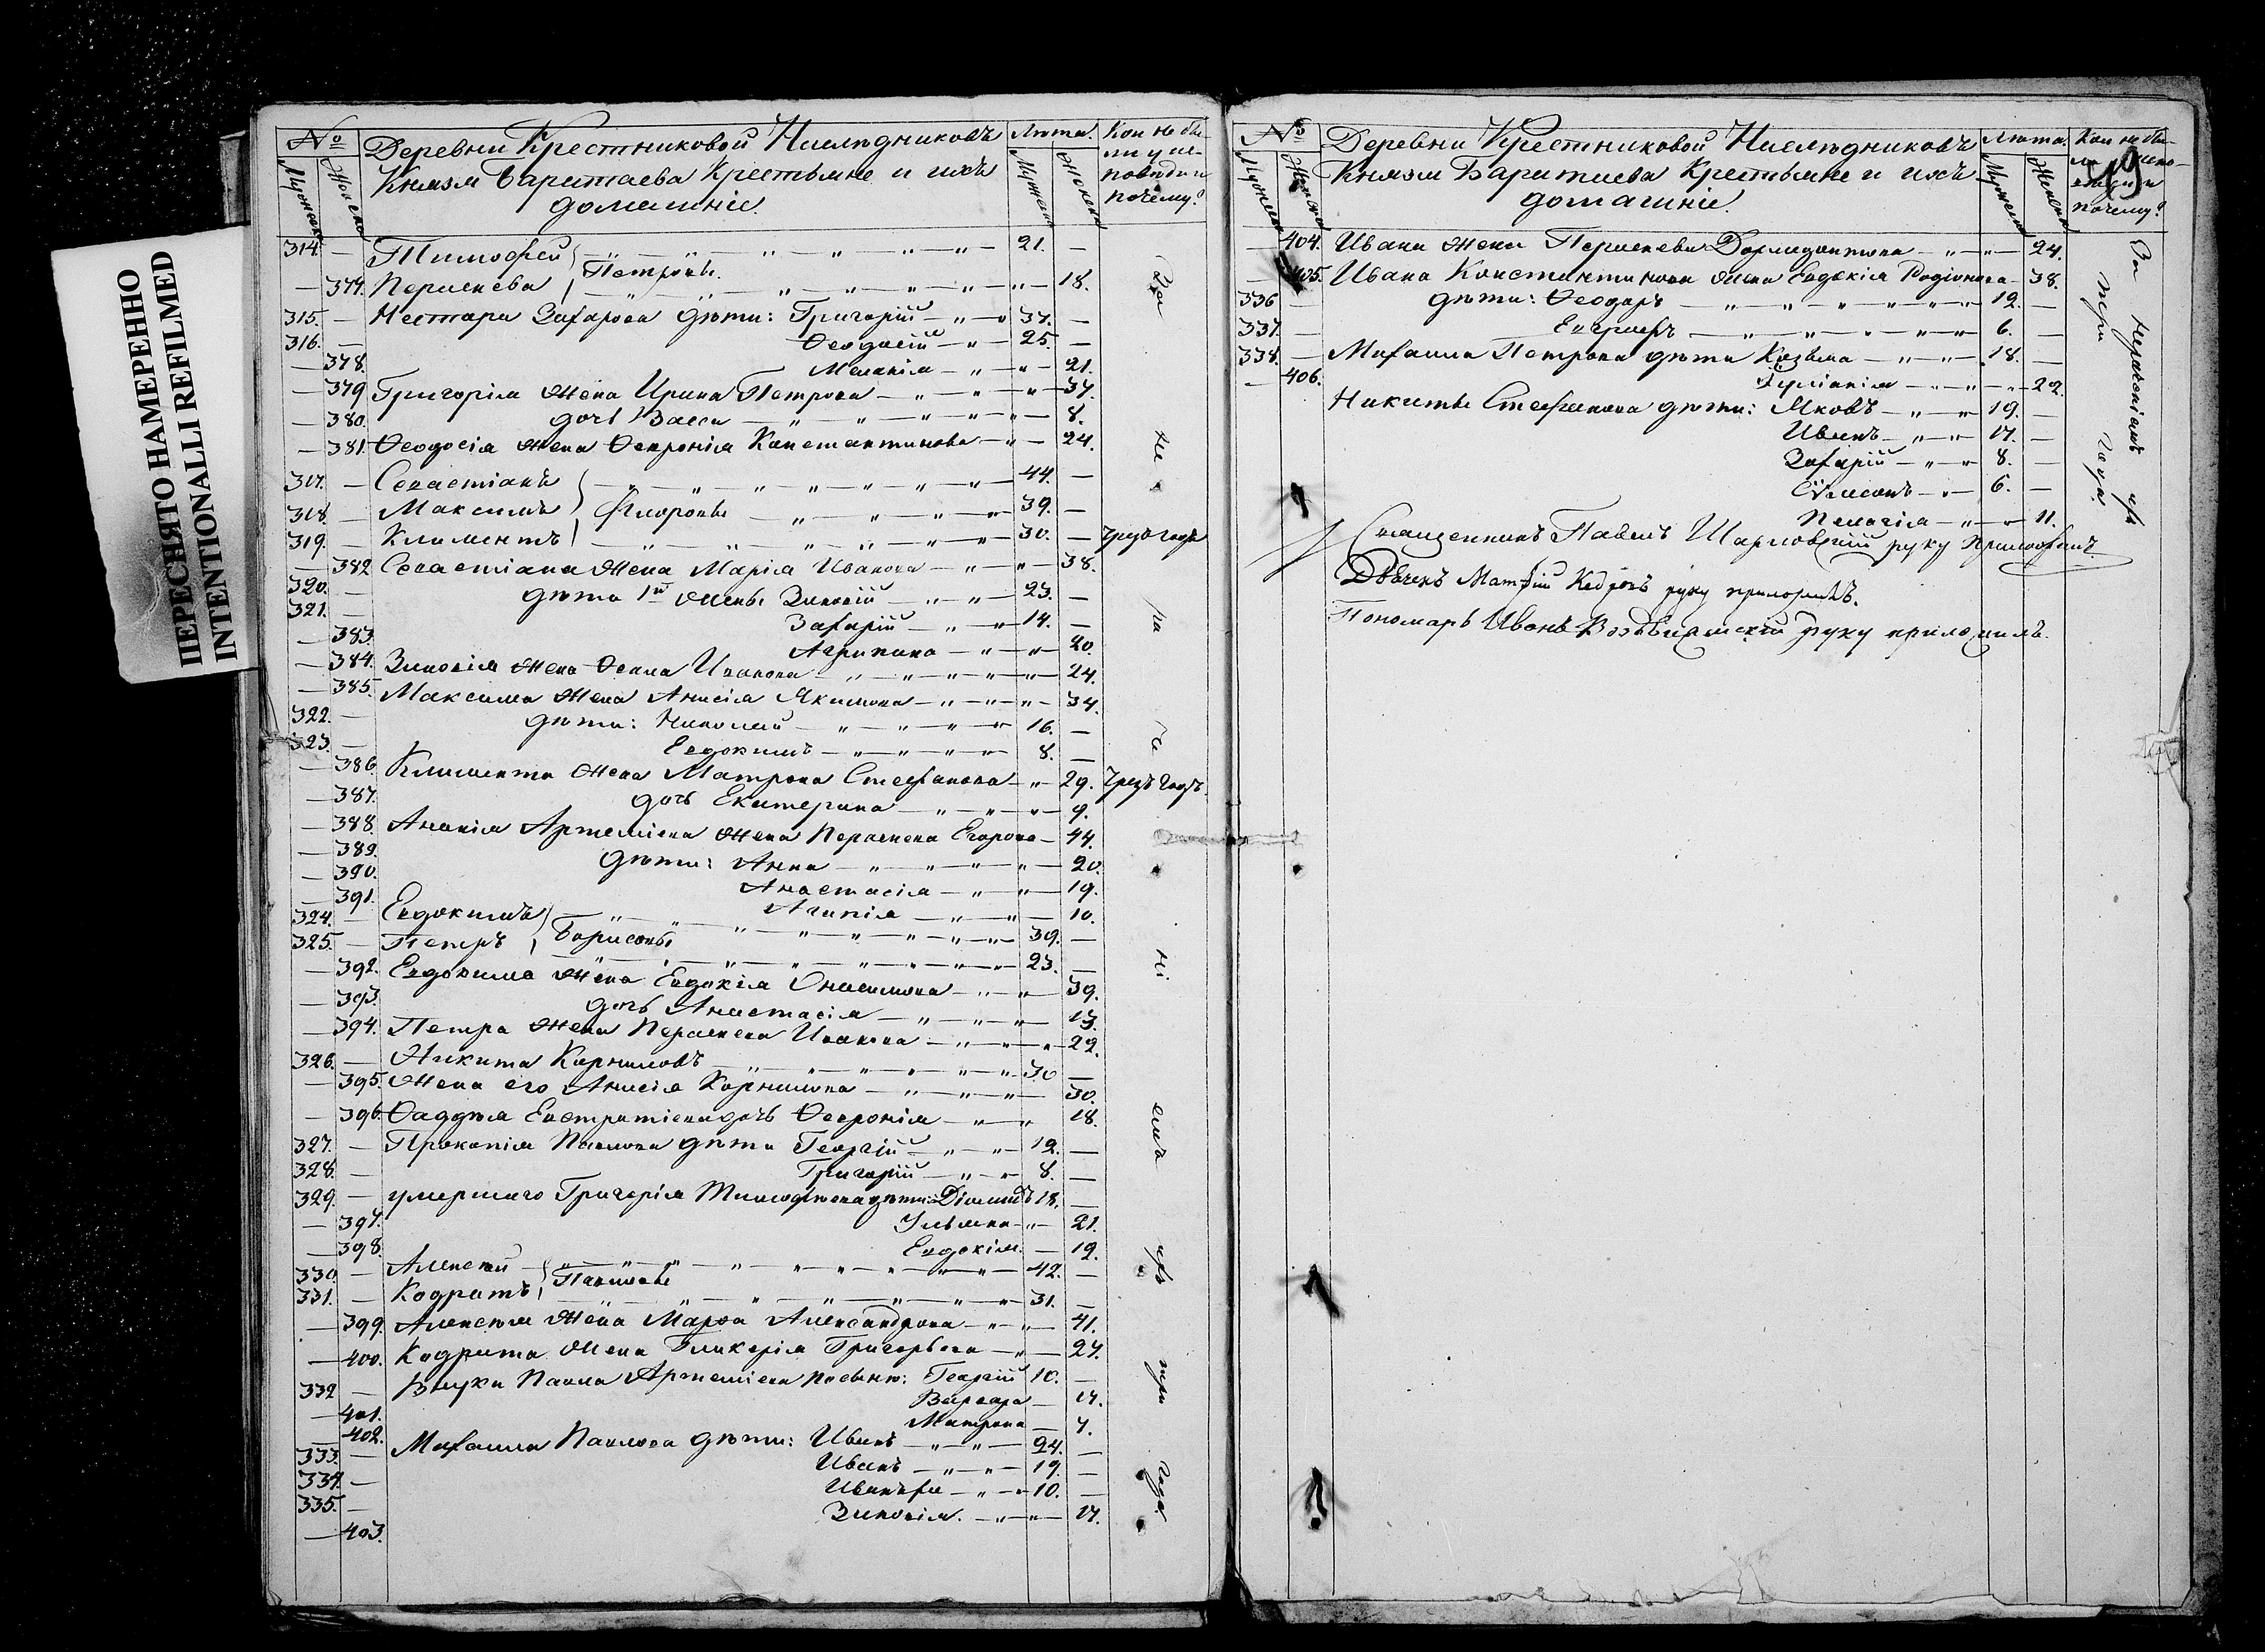 ПЕРЕСНЯТО НАМЕРЕННО
INTENTIONALLI REFILMED
№
Мужеска
Женска
Деревни Крестниковой Наслѣдниковъ
Князя Баратаева Крестьяне и ихъ
домашніе.
Лѣта.
Мужеск
Женск
Кои не бы-
ли у ис-
повѣди и
почему?
314. — Тимофей } Петровы 21. —
— 377. Параскева } 18.
315. — Нестора Захарова дѣти: Григорій 37. —
316. — Ѳеодосій 25. —
— 378. Меланія 21.
— 379 Григорія жена Ирина Петрова 37.
— 380. дочь Васса 8.
— 381. Ѳеодосія жена Ѳевронія Константинова 24.
317. — Севастіанъ } 44. —
318. — Максимъ } Флоровы 39. —
319. — Климентъ } 30. —
— 382 Севастіана жена Марія Иванова 38.
320. — дѣти 1й жены Зиновій 23. —
321. — Захарій 14. —
— 383. Агрипина 20
— 384. Зиновія жена Ѳекла Иванова 24.
— 385. Максима жена Анисія Якимова 34.
322. — дѣти: Николай 16. —
323. — Евдокимъ 8. —
— 386 Климента жена Матрона Стефанова 29.
— 387. дочь Екатерина 9.
— 388. Ананія Артеміева жена Параскева Егорова 44.
— 389. дѣти: Анна 20.
— 390. Анастасія 19.
— 391. Агапія 10.
324. — Евдокимъ } Борисовы 39. —
325. — Петръ } 23. —
— 392. Евдокима жена Евдокія Онисимова 39.
— 393. дочь Анастасія 13.
— 394. Петра жена Параскева Иванова 22.
326. — Никита Корниловъ 30 —
— 395. жена его Анисія Корнилова 30.
— 396 Ѳаддѣя Евстратіева дочь Ѳевронія 18.
327. — Прокопія Павлова дѣти Георгій 12. —
328. — Григорій 8. —
329. — умершаго Григорія Тимофѣева дѣти: 18. —
— 397. Ульяна 21.
— 398. Евдокія 12.
330. — Алексѣй } Павловы 42. —
331. — Кодратъ } 31. —
— 399. Алексѣя жена Марѳа Александрова 41.
— 400. Кодрата жена Гликерія Григорьева 27.
332 — Внуки Павла Артеміева Георгій 10. —
— 401. Варвара 17.
— 402. Матрона 7.
333. — Михаила Павлова дѣти: Иванъ 24. —
334. — Иванъ 19. —
335. — 10. —
— 403. Зиновія 17.
За не нра че ні емъ чрезъ три года.
Чрезъ годъ
Чрезъ годъ.
№
Мужеска
Женска
Деревни Крестниковой Наслѣдниковъ
Князя Баратаева Крестьяне и ихъ
домашніе.
Лѣта.
Мужеск
Женск
Кои не бы-
почему?
— 404. Ивана жена Параскева Дормидонтова 24.
— 405. Ивана Константинова жена Евдокія Родіонова 38.
336 дѣти: Ѳеодоръ 12. —
337. — Евграфъ 6. —
338. — Михаила Петрова дѣти Козьма 18. —
— 406. 22
Никиты Стефанова дѣти: Яковъ 19. —
Иванъ 17. —
Захарій 8. —
6. —
Пелагія 11.
Священникъ Павелъ руку приложилъ
Дьячекъ Матфій Кедровъ руку приложилъ.
Пономарь Иванъ Воздвиженскій руку приложилъ.